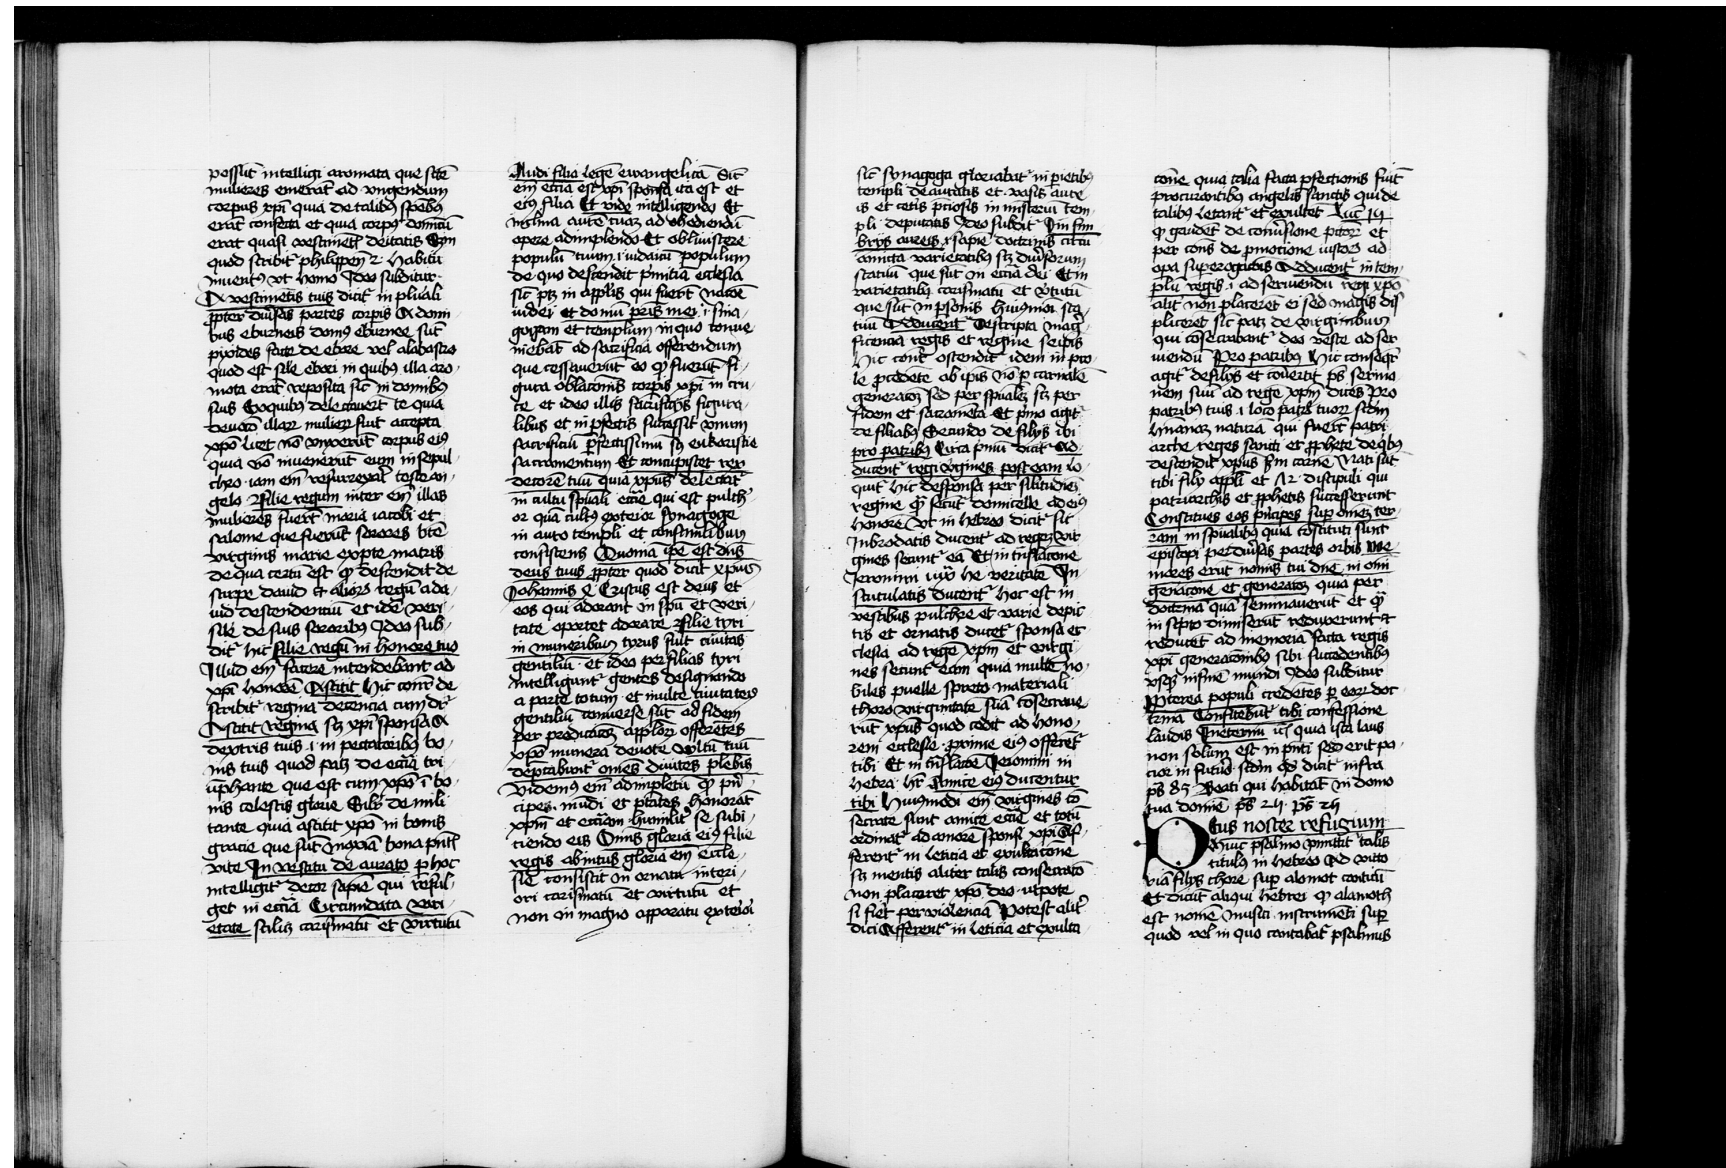 possunt intelligi aromata que scте
mulieres emerāt ad vngendum
corpus xp̄i quia de talibus spēbꝰ
erāt confecta et quia corpꝰ dominicū
erat quasi vestimētū deitatis
quod scribit philippen 2 habitu
inuentꝰ vt homo Ideo subditur
A vestimētis tuis dicit in plurali
ꝓpter diūsas partes corpis A domi
bus eburneis domꝰ eburnee sūt
pixides facte de ebore vel alabastro
quod est sile ebori in quibꝰ illa aro
mata erāt reposita sic in domibus
suis Ex quibus delectauerūt te quia
deuotō illaꝝ mulieꝝ fuit accepta
xp̄o licet nō vnxerūt corpus eiꝰ
quia nō inuenerūt eum in sepul
chro iam em̄ resurrexit teste an
gelo Filie regum inter em̄ illas
mulieres fuerūt maria iacobi et
salome que fuerūt sorores bt̄e
virginis marie ex pte matris
de qua certū est ꝙ descendit de
stirpe dauid et alioꝝ regū a da
uid descendentiū et idē veri
sile de suis sororibus Ideo sub
dit hic filie regū in honore tuo
Illud em̄ facere intendebant ad
xp̄i honorē Astitit hic conr̄ de
scribit regina decencia cum dr̄
Astitit regina scꝫ xp̄i sponsa A
dextris tuis i in peccatoribus bo
nis tuis quod patꝫ de ecc̄ia tri
umphante que est cum xp̄o ī bo
nis celestis glorie Silr̄ de mili
tante quia astitit xp̄o in bonis
gracie que sūt maxīa bona pn̄tis
vite In vestitu de aurato p hoc
intelligit decor sapiē qui reful
get in ecc̄ia Circumdata vari
etate scilicꝫ carismatū et virtutū
Audi filia legē ewangelicā Sic
em̄ ecc̄ia est xp̄i sponsa ita est et
eiꝰ filia Et vide intelligendo Et
inclina aurē tuaꝫ ad obediendū
opere adimplendo Et obliuiscere
populū tuum i iudaicū populum
de quo descendit pmitiua ecclesia
sic ptꝫ in appl̄is qui fuerūt nacōe
iudei et domū pris mei i sina
gogam et templum in quo conue
niebāt ad sacrificia offerendum
que cessauerūt eo ꝙ fuerūt fi
gura oblacōnis corpis xp̄i in cru
ce et ideo illis sacrificijs figura
libus et inpfectis successit vnum
sacrificiū pfectissimū scꝫ eukaristie
sacramentum Et concupiscet rex
decorē tuū quia xpus delectat̄
in cultu spūali ecc̄ie qui est pulch
or quā cultꝰ exterior synagoge
in auro templi et consimilibus
consistens Quonia ip̄e est dn̄s
deus tuus ꝓpter quod dicit xpus
Johannis 4 Cristus est deus et
eos qui adorant in spū et veri
tate oportet adorare Filie tyri
in muneribus tyrus fuit ciuitas
gentiliū et ideo per filias tyri
intelligunt gentes designando
a parte totum et multe ciuitates
gentiliū conuerse sūt ad fidem
per predicatōꝫ appl̄oꝝ offerētes
xp̄o munera deuote Vultū tuū
deprecabunt omēs diuites plebis
Videmꝰ em̄ adimpletū ꝙ pn̄
cipes mūdi et ptātes honorāt
xp̄m et ecc̄iam humilit̄ se subi
ciendo eis Omnis gloria eiꝰ filie
regis ab intus gloria em̄ eccle
sie consistit in ornatu interi
ori carismatū et virtutū et
non in magno apparatu exteriori
sic synagoga gloriabat̄ in parietibꝰ
templi deauratis et vasis aure
is et cetis pciosis in misteriū tem
pli deputatis Ideo subdit In fim
brijs aureis i sapiē doctrinis circū
amicta varietatibꝰ scꝫ diūsorum
statuū que sūt in ecc̄ia dei Et in
varietatibꝰ carismatū et virtutū
que sūt in psonis huiusmōi sta
tuū Adducent̄ Descripta mag
ficencia regis et regine seipis
hic conr̄ ostendit idem in pro
le pcedēte ab ipis nō p carnalē
generatōꝫ sed per spūalēꝫ scꝫ per
fidem et sacramēta Et pmo agit̄
de filiabꝰ Secundo de filijs ibi
pro patribꝰ Circa pmū dicit Ad
ducent̄ regi virgines post eam lo
quit̄ hic de sponsa per silitudinē
regine ꝙ secūt domicelle ad eiꝰ
honorē Vt in hebreo dicit̄ sic
In brodatis ducent̄ ad regeꝫ vir
gines secunt̄ eā Et in trāslacōne
Jeronimi iuxͣ he veritatē In
scutulatis ducent̄ hoc est in
vestibus pulchre et varie depic
tis et ornatis ducet̄ sponsa ec
clesia ad regē xp̄m et virgi
nes secunt̄ eam quia multe no
biles puelle spreto materiali
thoro virginitatē suā cōsecraue
rūt xp̄us quod cedit ad hono
rem ecclesie proxime eiꝰ offerēt̄
tibi Et in trāslacōe Jeronimi in
hebra h̄t Amice eiꝰ ducentur
tibi huiusmodi em̄ virgines cō
secrate sunt amice ecc̄ie et totū
ordinat̄ ad amorē sponsi xp̄i Af
ferent̄ in leticia et exultacōne
scꝫ mentis aliter talis consecratō
non placeret xp̄o deo vtpote
si fiet per violenciā Potest alit̄
dici Afferent̄ in leticia et exulta
cōne quia talia facta pfectionis fiunt
procurantibꝰ angelis sanctis qui de
talibus letant̄ et exultēt Luc̄ 19
ꝙ gaudet de conūsione pctoꝝ et
per cons̄ de pmotione iustoꝝ ad
opa supererogatōis Adducent̄ in tem
plū regis i ad seruiendū regi xp̄o
alit̄ non placerēt ei sed magis dis
plicerēt sic patꝫ de virginibus
qui cōsecrabant̄ dee veste ad ser
uiendū Pro patribus hic conseqr̄
agit̄ de filijs et cōuertit ps̄ sermo
nem suū ad regē xp̄m dicēs Pro
patribus tuis i loco patrū tuoꝝ scdm̄
humanaꝫ naturā qui fuerūt patri
arche reges sancti et ꝓphete de qbꝰ
descendit xpus scdm carnē Nati sūt
tibi filij appl̄i et 72 discipuli qui
patriarchis et ꝓphetis successerunt
Constitues eos pncipes sup omēꝫ ter
ram in spūalibus quia cōstituti sunt
episcopi per diūsas partes orbis Me
mores erūt nomīs tui dn̄e in omni
gen̄acōne et gen̄acōꝫ quia per
doctrinā quā seminauerūt et ꝙ
in scpto dimiserūt reduxerunt et
reducēt ad memoriā facta regis
xp̄i generacōnibus sibi succedentibus
vsqꝫ in finē mundi Ideo subditur
Propterea populi credētes p eoꝝ doc
trinā Confitebūt̄ tibi confessione
laudis In eternū ic̄ quia ista laus
non solum est in pn̄ti sed erit po
cior in futuro scdm̄ qd̄ dicit̄ infra
ps̄ 83 Beati qui habitāt in domo
tua domine ps̄ 24 ps̄ 24
Deus noster refugium
Huic psalmo pmittit̄ talis
titulꝰ in hebreo Ad victo
riā filijs chore sup alamot canticū
Et dicūt aliqui hebrei ꝙ alamoth
est nomē musici instrumēti sup
quod vel in quo cantabat̄ psalmus